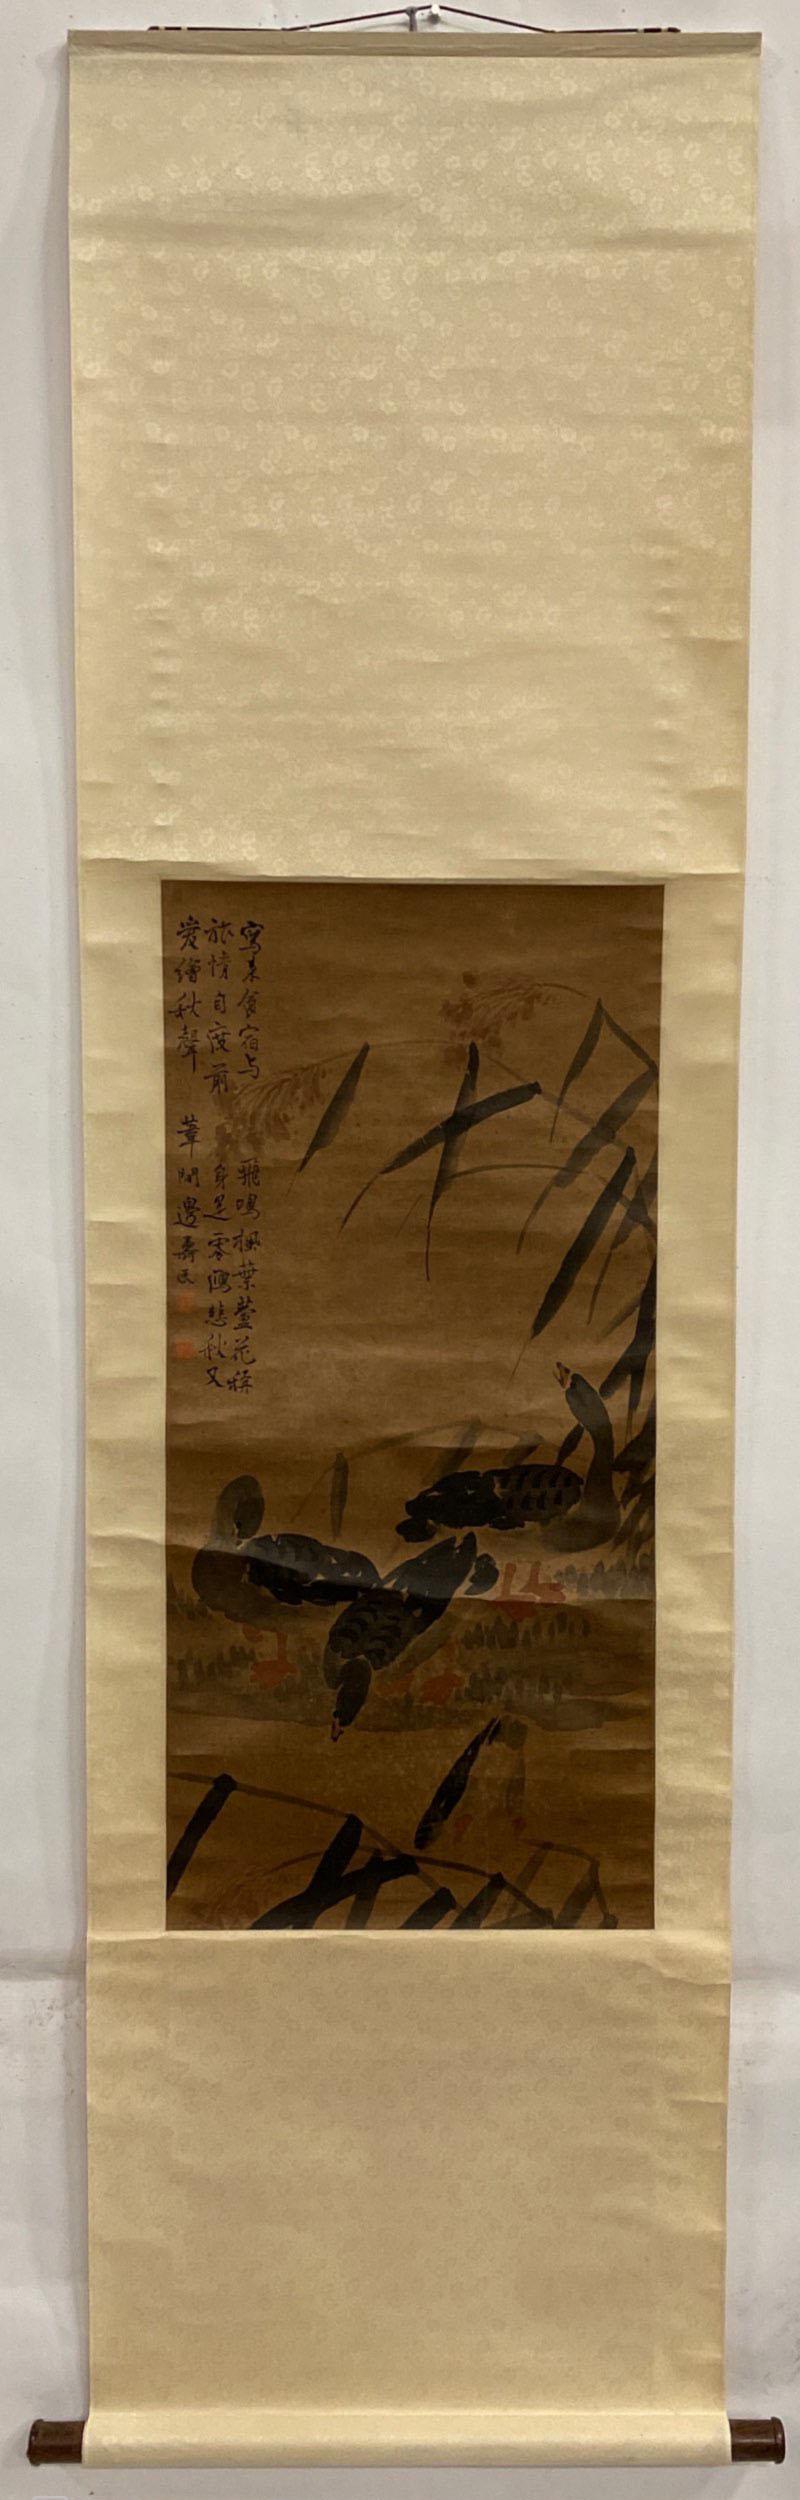 寫來食宿与飛鳴楓葉蘆花稱
旅情自度前身是零鴻悲秋又
愛繪秋聲 葦間邊壽民